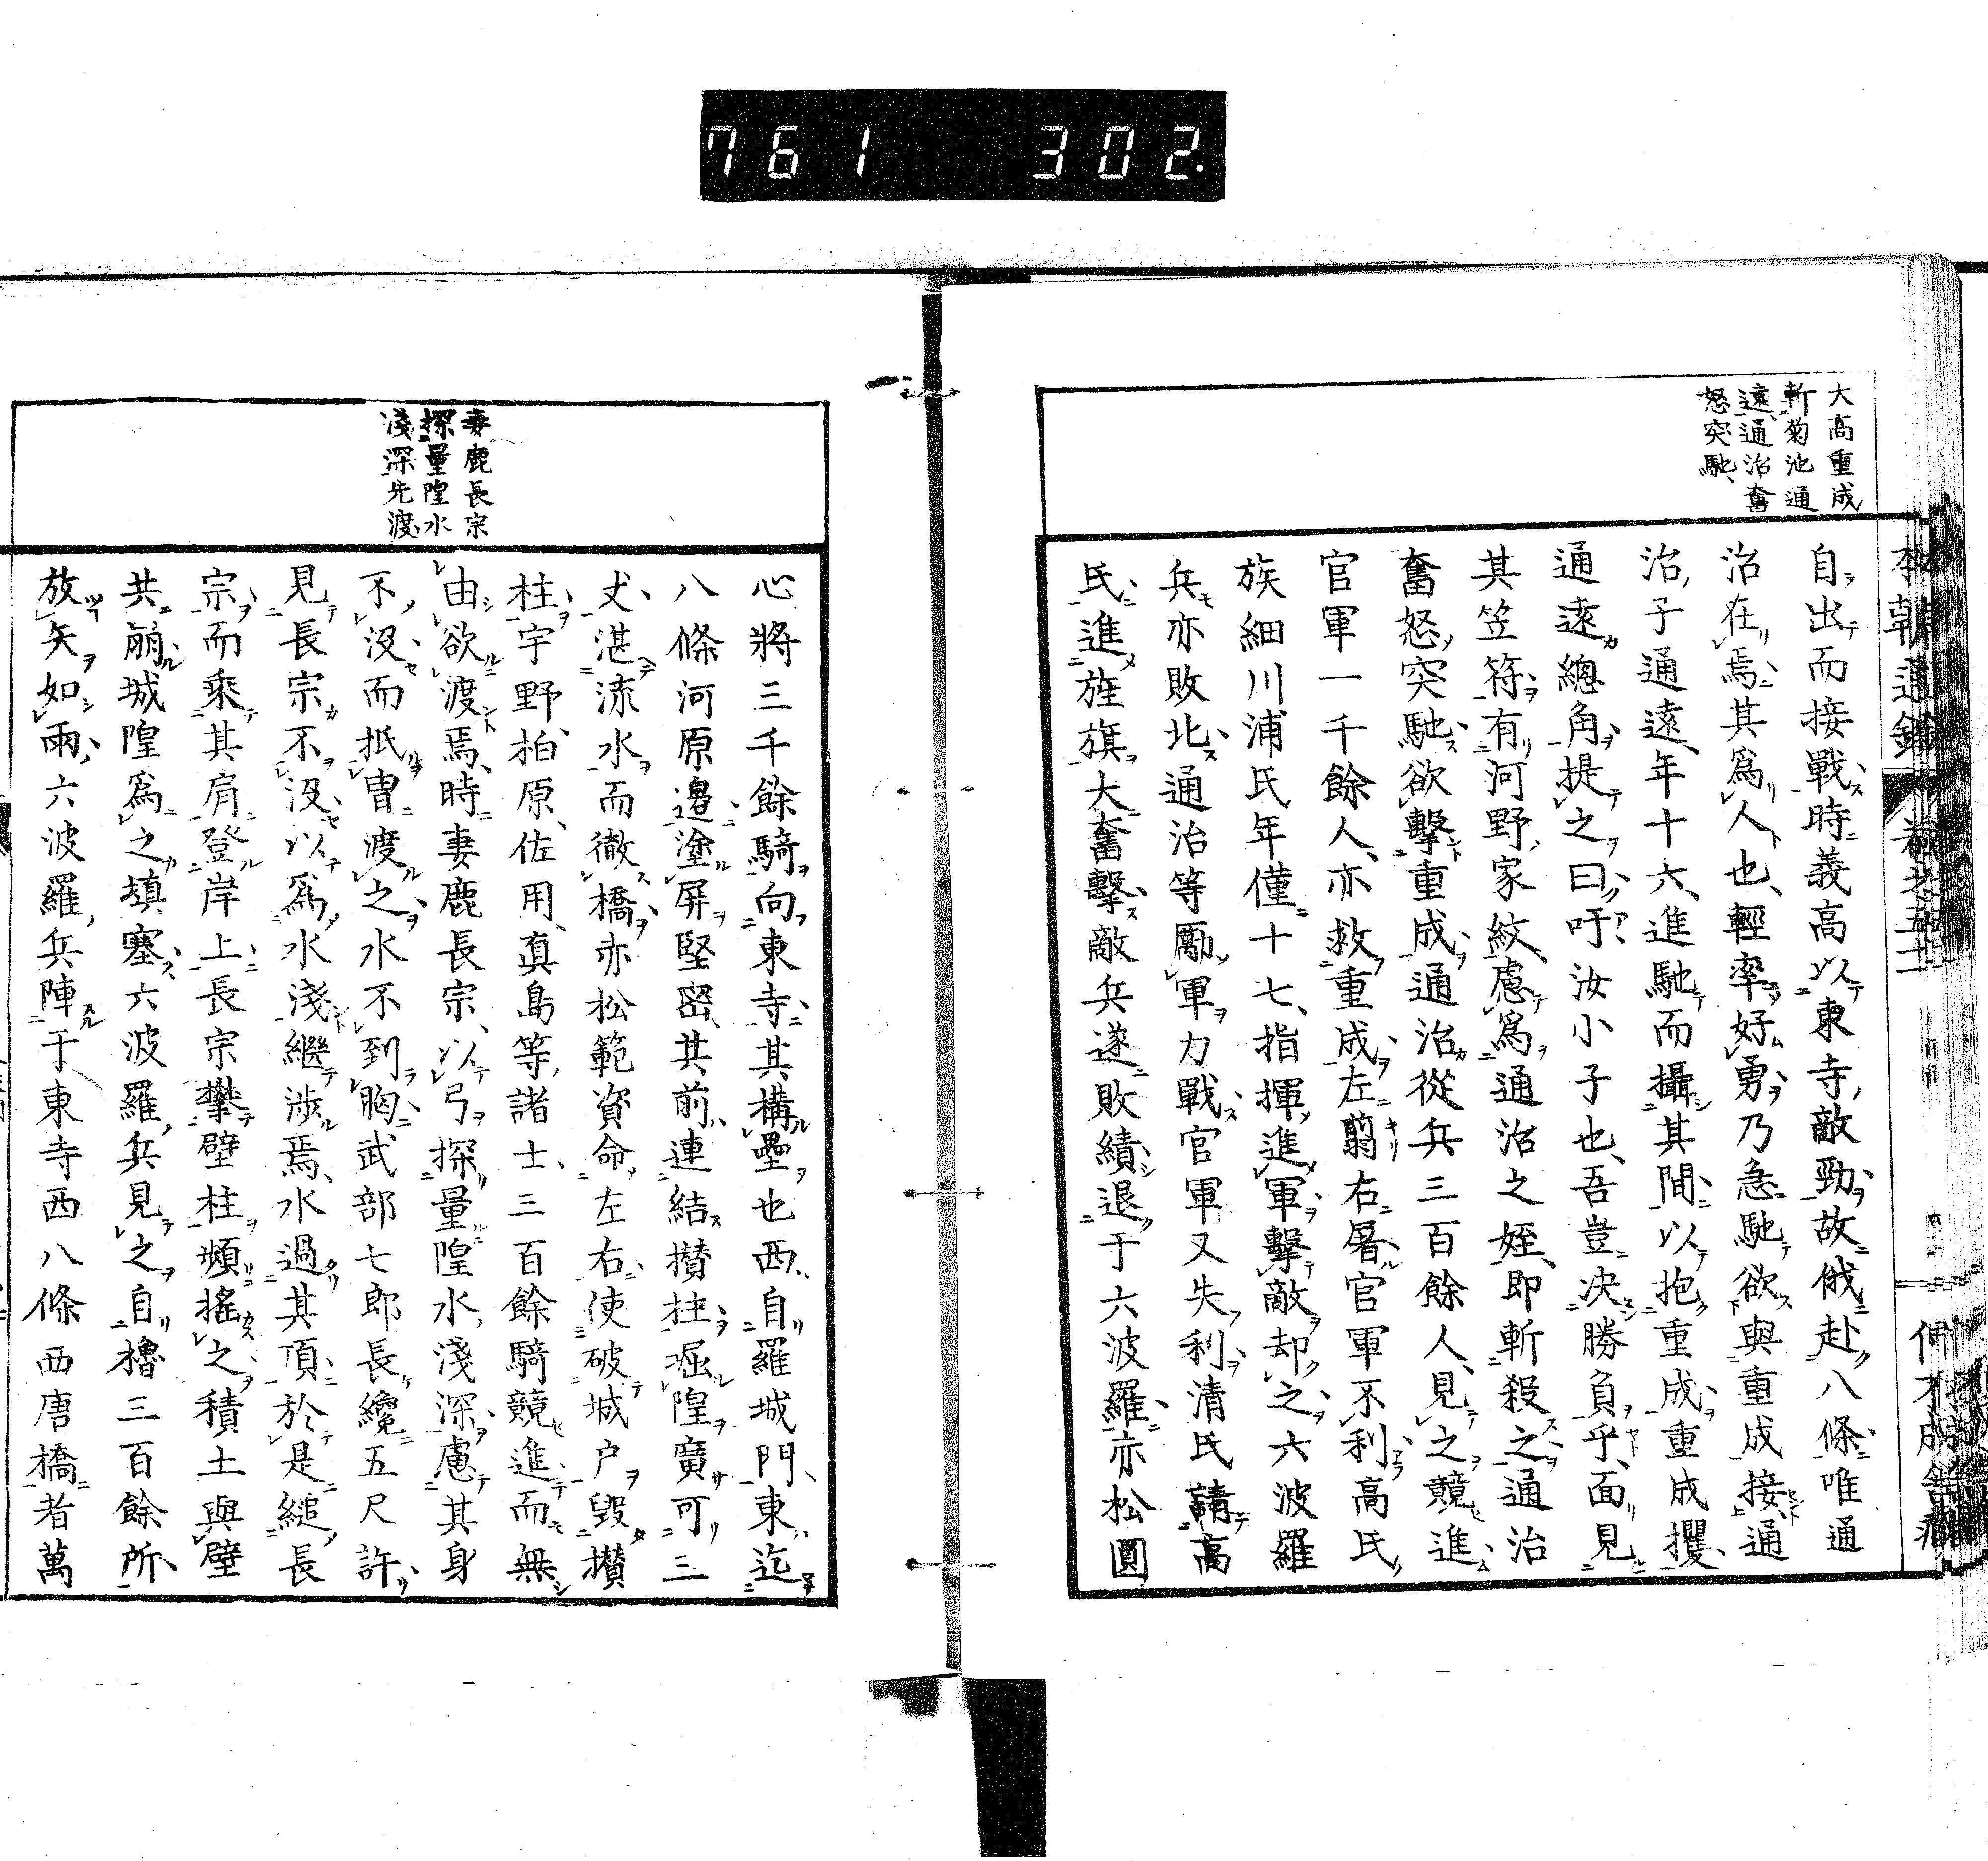 761 302.
大高重成
斬菊池通
遠、通治奮
怒突馳、
自出而接戰時義高以東寺敵勁故俄赴八條唯通
治在焉其爲人也、輕率好勇乃急馳欲與重成接通
治子通遠、年十六、進馳而攝其間以抱重成重成攫
通遠總角提之曰吁汝小子也、吾豈决勝負乎、面見
其笠符有河野家紋、慮爲通治之姪、即斬殺之通治
奮怒突馳欲擊重成通治從兵三百餘人、見之競進
官軍一千餘人、亦救重成左翦右屠官軍不利高氏
族細川浦氏年僅十七、指揮進軍擊敵却之六波羅
兵亦敗北通治等勵軍力戰官軍又失利清氏請高
氏進旌旗大奮擊敵兵遂敗績退于六波羅亦松圓
妻鹿長宗
探量隍水
淺深先渡
心將三千餘騎向東寺其構壘也西自羅城門、東迄
八條河原邉塗屏堅密其前連結攅柱堀隍廣可三
丈湛流水而徹橋亦松範資命左右使破城戸毀攅
柱宇野、柏原、佐用、眞島等、諸士三百餘騎競進而無
由欲渡焉、時妻鹿長宗、以弓探量隍水淺深慮其身
不沒而抵冑渡之水不到胸武部七郎長纔五尺許
見長宗不沒以爲水淺繼渉焉、水過其頂於是縋長
宗而乘其肩登岸上長宗攀壁柱頻搖之積土與壁
共崩城隍爲之塡塞六波羅兵見之自櫓三百餘所
放矢如雨六波羅兵陣于東寺西八條西唐橋者萬